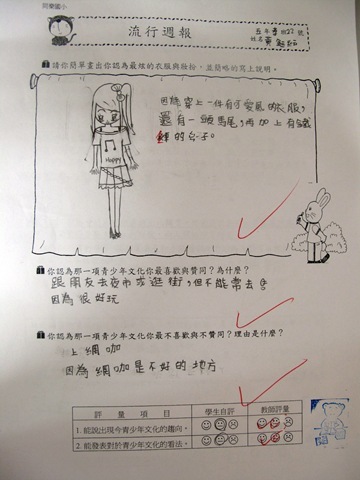 同樂國小
流行週報
五年 班22號
姓名
請你簡單畫出你認為最炫的衣服與妝扮，並簡略的寫上說明。
因為穿上一件有可愛風的衣服,
還有一頭馬尾,再加上有
的台子。
Happy
你認為那一項青少年文化你最喜歡與贊同？為什麼？
跟朋友去夜市或逛街,但不能常去
因為很好玩
你認為那一項青少年文化你最不喜歡與不贊同？理由是什麼？
上綢咖
因為綢咖是不好的地方
評量項目 學生自評 教師評量
1. 能說出現今青少年文化的趨向。
2. 能發表對於青少年文化的看法。